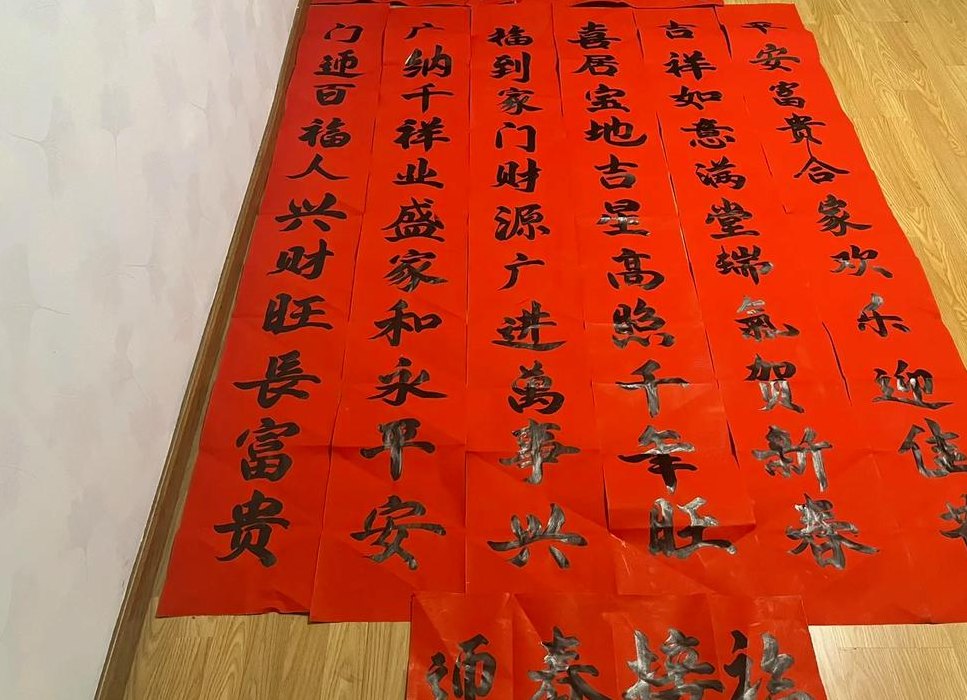 平安富贵合家欢乐迎佳
吉祥如意满堂瑞氣贺新春
喜居宝地吉星高照千年旺
福到家门财源广进萬事兴
广纳千祥业盛家和永平安
门迎百福人兴财旺長富贵
迎春接福